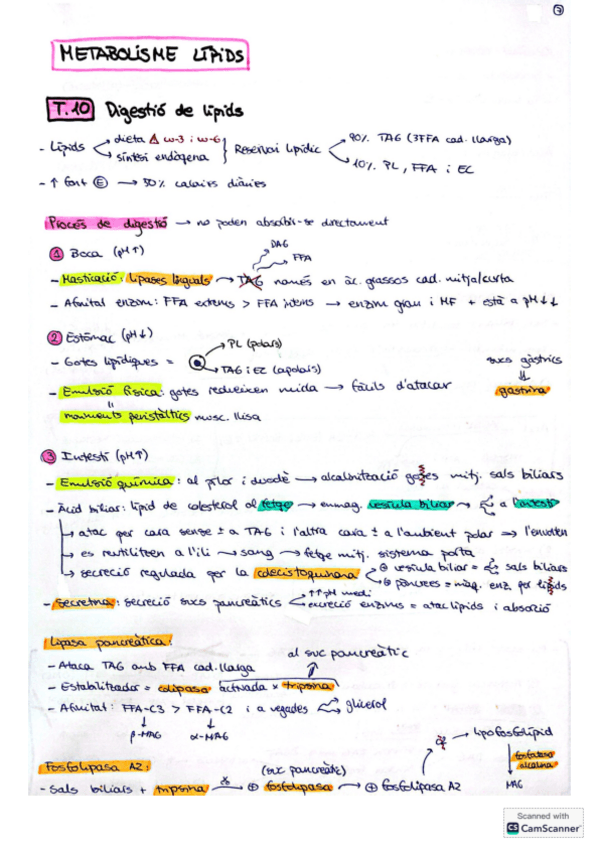 7
METABOLISME LÍPIDS
T.10 Digestió de lípids
- Lípids → dieta ⚠ ω-3 i ω-6 } Reservori lipídic → 90% TAG (3FFA cad. llarga)
→ síntesi endògena → 10% PL, FFA i EC
- ↑ font Ⓔ → 30% calories diàries
Procés de digestió → no poden absorbir-se directament
① Boca (pH↑)
DAG
FFA
- Masticació: lipases linguals → TAG només en àc. grassos cad. mitja/curta
- Afinitat enzim: FFA externs > FFA interns → enzim gran i HF + està a pH↓↓
② Estómac (pH↓)
→ PL (polars)
- Gotes lipídiques = → TAG i EC (apolars)
sucs gàstrics
- Emulsió física: gotes redueixen mida → fàcils d'atacar
gastrina
moviments peristàltics musc. llisa
③ Intestí (pH↑)
- Emulsió química: al pílor i duodè → alcalinització gotes mitj. sals biliars
- Àcid biliar: lípid de colesterol al fetge → emmag. vesícula biliar → a l'intestí
→ atac per cara sense ± a TAG i l'altra cara ± a l'ambient polar ⇒ l'envolten
→ es reutilitzen a l'ili → sang → fetge mitj. sistema porta
→ secreció regulada per la colecistoquinina → ⊕ vesícula biliar = sals biliars
→ ⊕ pàncrees = màq. enz. per lípids
- Secretina: secreció sucs pancreàtics → ↑↑pH medi
→ excreció enzims = atac lípids i absorció
Lipasa pancreàtica:
al suc pancreàtic
- Ataca TAG amb FFA cad. llarga
- Estabilitzador = colipasa activada x tripsina
- Afinitat: FFA-C3 > FFA-C2 i a vegades → glicerol
↓ ↓
β-MAG α-MAG
→ lipofosfolípid
Fosfolipasa A2:
(suc pancreàtic)
fosfatasa alcalina
- Sals biliars + tripsina → ⊕ fosfolipasa → ⊕ fosfolipasa A2
MAG
Scanned with
CS CamScanner